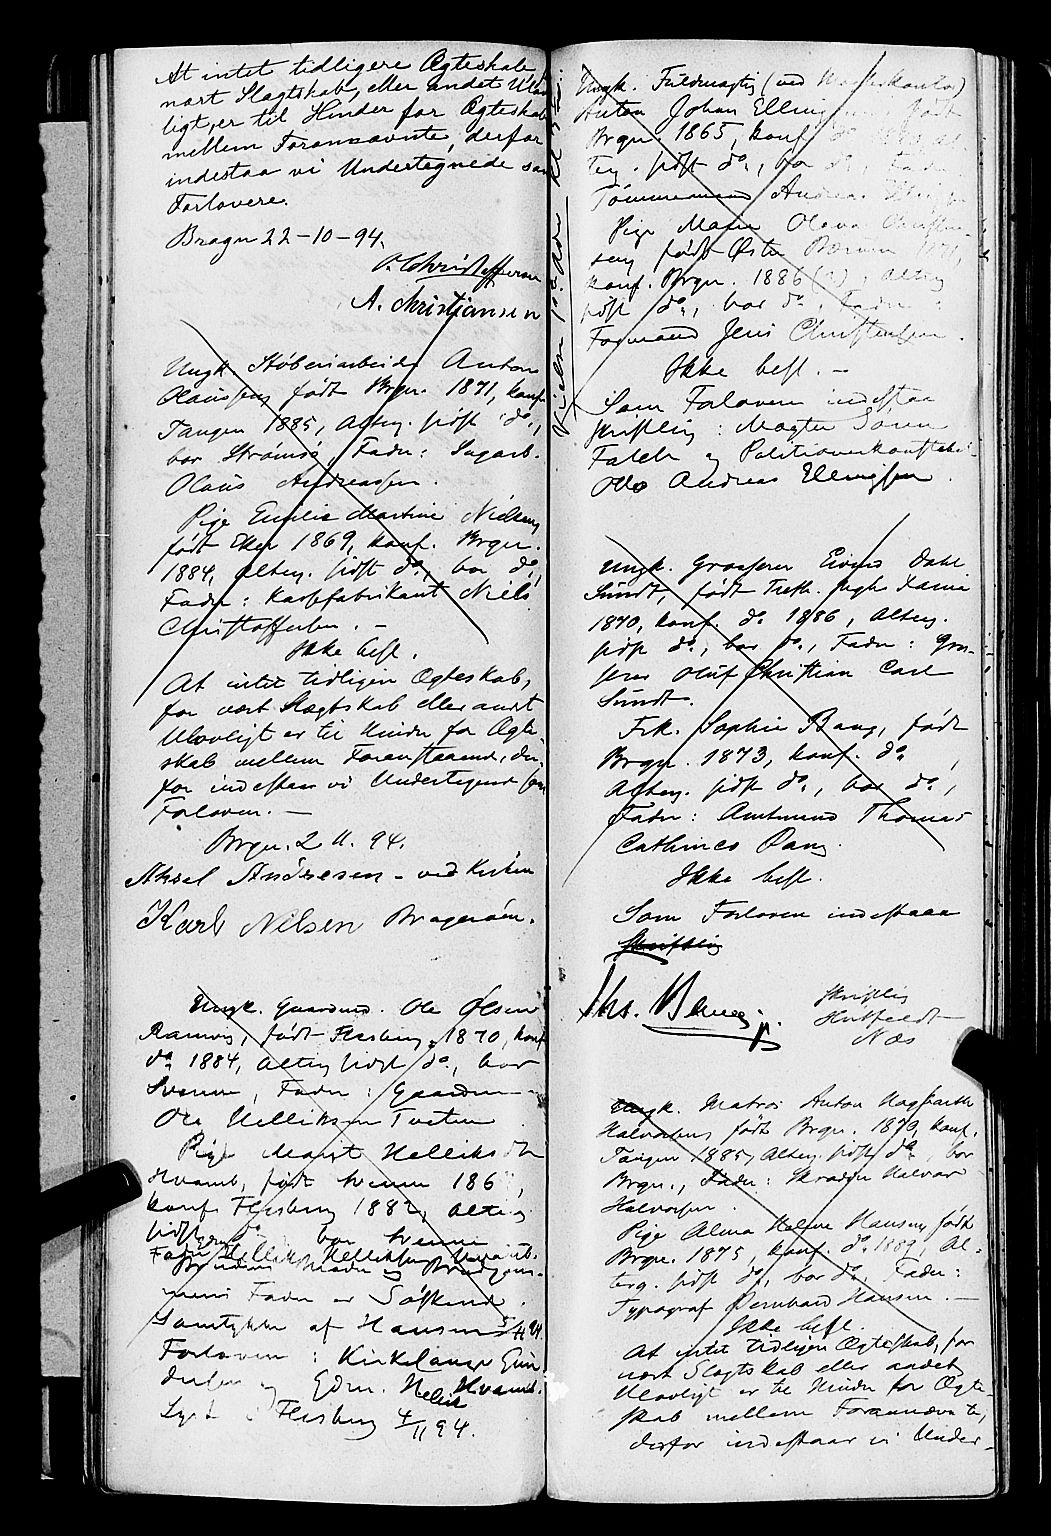 At intet tidligere Ægteskab,
nært Slægtskab, eller andet Ulov
ligt, er til Hinder for Ægteskab
mellem Forannævnte, derfor
indestaa vi Undertegnede som
Forlovere.
Bragn 22-10-94.
O. Christoffersen
A. Christiansen
Ungk. Støberiarbeider Anton
Olaussen født Brgn. 1871, konf.
Tangen 1885, Alterg. sidst do.,
bor Strømsø, Fader: Sagarb.
Olaus Andreassen.
Pige Emilie Martine Nielsen
født Eker 1869, konf. Brgn.
1884, Alterg. sidst do., bor do.,
Fader: Kassefabrikant Niels
Christoffersen. -
Ikke besl.
At intet tidligere Ægteskab,
for nært Slægtskab eller andet
Ulovligt er til Hinder for Ægte-
skab mellem Foranstaaende, der-
for indestaar vi Undertegnede som
Forlovere. -
Brgn. 2 11. 94.
Aksel Andresen - ved Kirken
Karl Nilsen Bragernæs.
Ungk. Gaardmd. Ole Olsen
født Flesberg 1870, konf
do 1884, Alterg sidst do., bor
Svenne, Fader: Gaardm-
Ole Helliksen Tveten
Pige Margit Helliksdtr
Hvamb, født Svenne 186 ,
konf Flesberg 1882, alterg
sidstgang do bor Svenne
Fader Hellik Helliksen Hvamb.
Brudens Moder og Brudgom-
mens Fader er Søskende.
Samtykke af Hansen 5/11 94.
Forlovere: Kirkesanger Gun
dersen og Gdm. Hellik Hvamb.
Lyst i Flesberg 4/11 94.
Ungk. Fuldmægtig (ved
Anton Johan Ellingsen født
Brgn 1865, konf. do
terg. sidst do., bor do, Fader
Tømmermand Andreas
Pige Marie Olava Christen-
sen født Østre Bærum
konf. Brgn. 1886 (?), alterg
sidst do., bor do. Fader:
Formand Jens Christensen.
Ikke besl. -
Som Forlovere indestaa
skriftlig: Søren
Falch og Politioverkonstabel
Otto Andreas Ellingsen.
Ungk. Grosserer Eivind Dahl
Sundt, født Trefk. Sogn Xania
1870, konf. do 1886, Alterg.
sidst do., bor do., Fader: Gros-
serer Oluf Christian Carl
Sundt.
Frk. Sophie Bang, født
Brgn. 1873, konf. do ,
Alterg. sidst do., bor do.,
Fader: Amtmand Thomas
Cathinco Bang.
Ikke besl.
Som Forlovere indestaaa
Skriftlig
Ths. Bang.
skriftlig
Huitfeldt
Næs
Ungk. Matros Anton Hagbarth
Halvorsen født Brgn. 1870, konf.
Tangen 1885, Alterg. sidst do, bor
Brgn., Fader: Skrædder Halvor
Halvorsen.
Pige Alma Helene Hansen født
Brgn. 1875, konf. do. 1889, Al-
terg. sidst do, bor do. Fader:
Typograf Bernhard Hansen. -
Ikke besl.
At intet tidligere Ægteskab, for
nært Slægtskab eller andet
Ulovligt er til Hinder for Ægte-
skab mellem Forannævnte,
derfor indestaar vi Under-